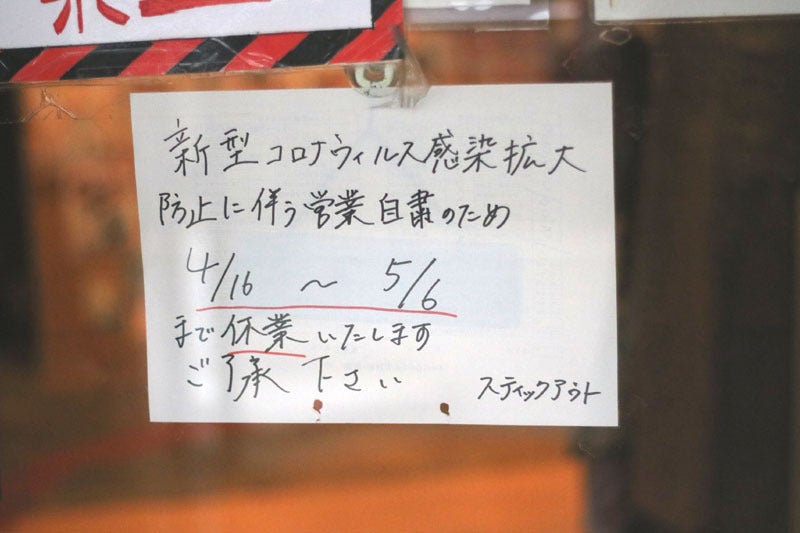 新型コロナウィルス感染拡大
防止に伴う営業自粛のため
4/16 ～ 5/6
まで休業いたします
ご了承下さい
スティックアウト